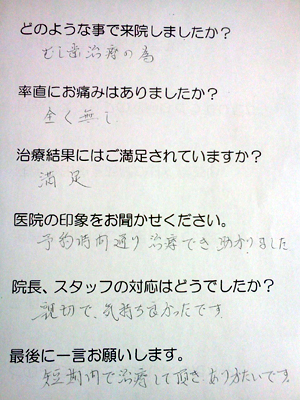 どのような事で来院しましたか？
むし歯治療の為
率直にお痛みはありましたか？
全く無し
治療結果にはご満足されていますか？
満足
医院の印象をお聞かせください。
予約時間通り治療でき助かりました
院長、スタッフの対応はどうでしたか？
親切で、気持ち良かったです
最後に一言お願いします。
短期内で治療して頂きありがたいです。